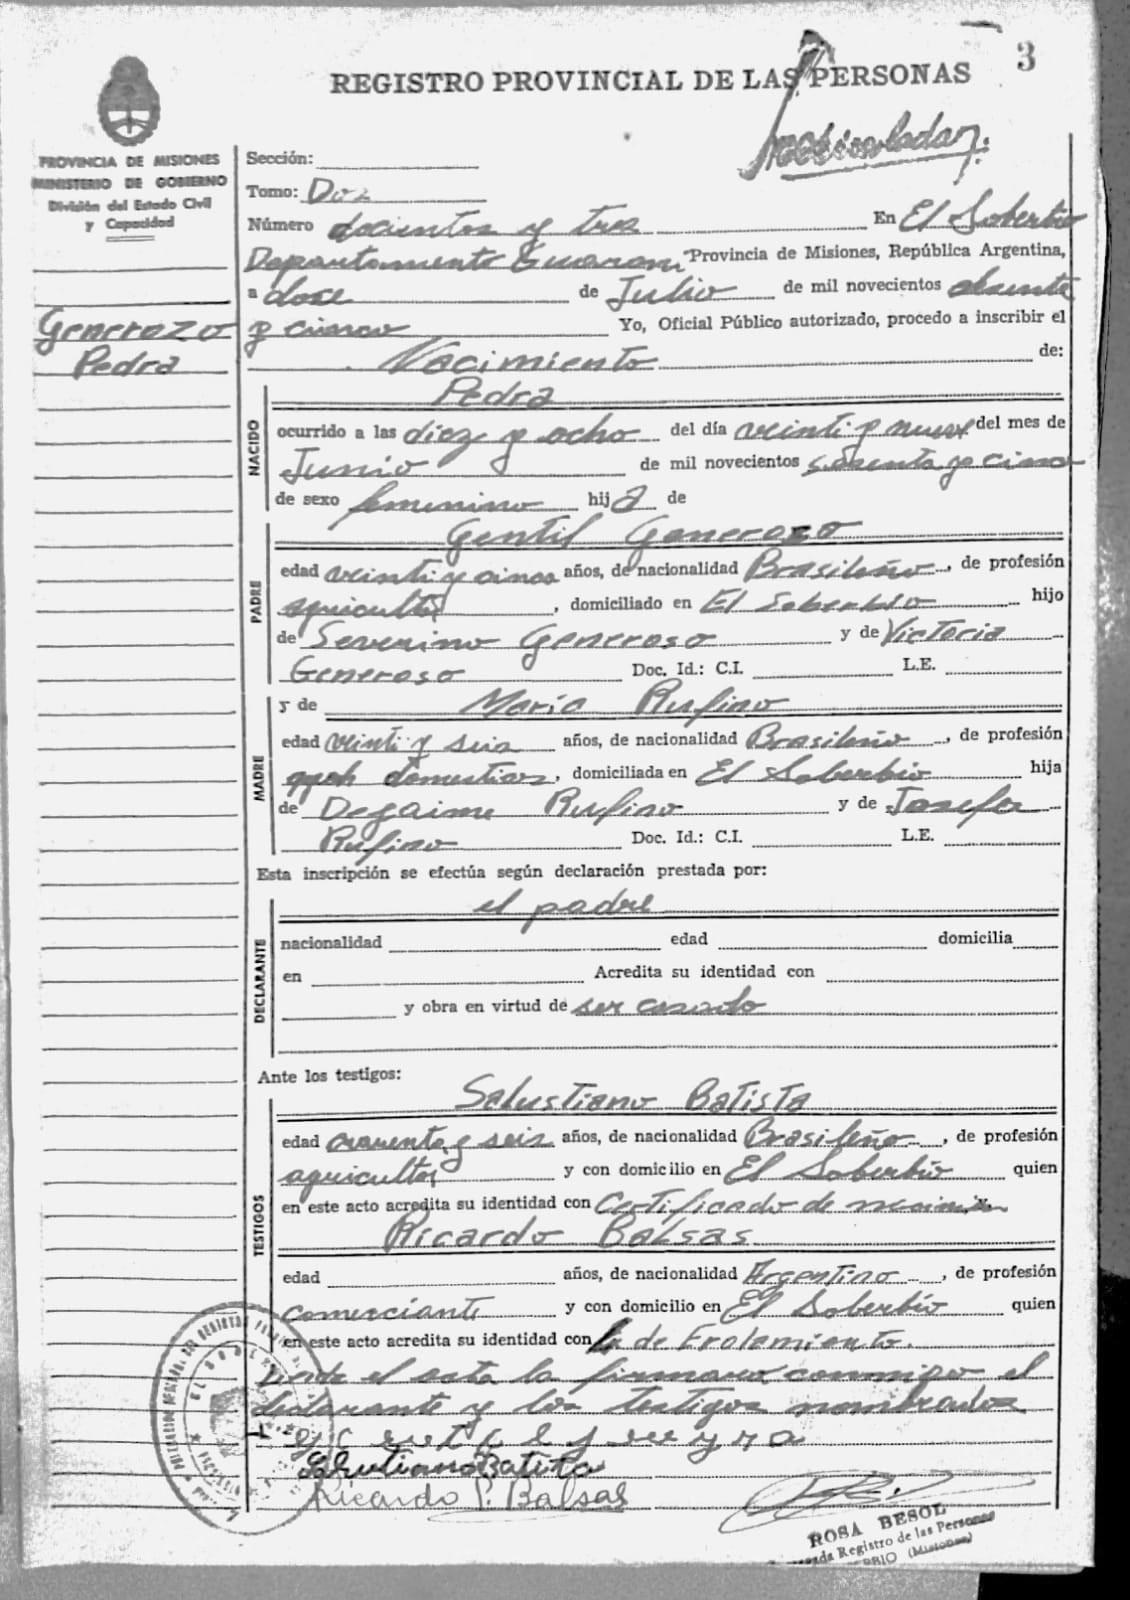 3
REGISTRO PROVINCIAL DE LAS PERSONAS
PROVINCIA DE MISIONES
MINISTERIO DE GOBIERNO
División del Estado Civil
y Capacidad
Generozo
Pedra
Sección:
Tomo: Dos
Número docientos y tres En El Soberbio
Departamento Guarani Provincia de Misiones, República Argentina,
a doce de Julio de mil novecientos
y cinco Yo, Oficial Público autorizado, procedo a inscribir el
Nacimiento de:
NACIDO
Pedra
ocurrido a las diez y ocho del día veinti y nueve del mes de
Junio de mil novecientos sesenta y cinco
de sexo femenino hija de
PADRE
Gentil Generozo
edad veinti y cinco años, de nacionalidad Brasileño, de profesión
agricultor, domiciliado en El Soberbio hijo
de Severino Generoso y de Victoria
Generoso Doc. Id.: C.I. L.E.
MADRE
y de Maria Rufino
edad veinti y seis años, de nacionalidad Brasileño, de profesión
domesticos, domiciliada en El Soberbio hija
de Degaime Rufino y de Josefa
Rufino Doc. Id.: C.I. L.E.
Esta inscripción se efectúa según declaración prestada por:
DECLARANTE
el padre
nacionalidad edad domicilia
en Acredita su identidad con
y obra en virtud de ser casado
Ante los testigos:
TESTIGOS
Salustiano Batista
edad cuarenta y seis años, de nacionalidad Brasileño, de profesión
agricultor y con domicilio en El Soberbio quien
en este acto acredita su identidad con Certificado de
Ricardo Balsas
edad años, de nacionalidad Argentino, de profesión
comerciante y con domicilio en El Soberbio quien
en este acto acredita su identidad con L. de Erolamiento.
el acta la firmaron conmigo el
declarante y los testigos nombrados
Salustiano Batista
Ricardo P. Balsas
ROSA BESOL
Registro de las Personas
(Misiones)